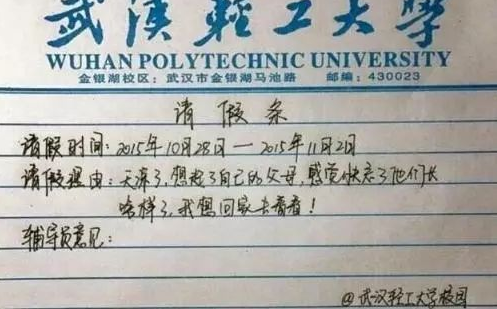 武漢輕工大學
WUHAN POLYTECHNIC UNIVERSITY
金银湖校区：武汉市金银湖马池路 邮编：430023
请假条
请假时间：2015年10月28日—2015年11月2日
请假理由：天凉了，想起了自己的父母，感觉快忘了他们长
啥样了，我想回家去看看！
辅导员意见：
@武汉轻工大学校园